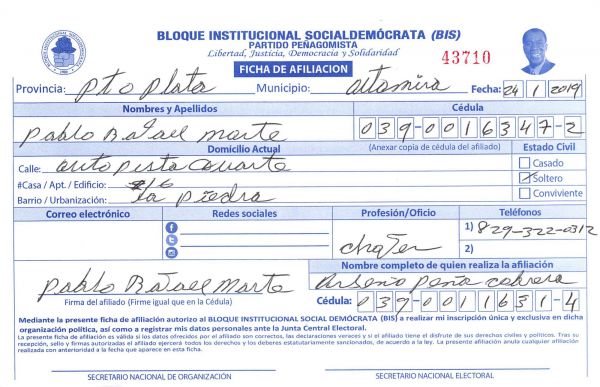 BLOQUE INSTITUCIONAL SOCIALDEMÓCRATA (BIS)
PARTIDO PEÑAGOMISTA
Libertad, Justicia, Democracia y Solidaridad
43710
FICHA DE AFILIACION
Provincia: Pto Plata Municipio: altamira Fecha: 24/1/2019
Nombres y Apellidos Cédula
Pablo Rafael Marte 039-0016347-2
Domicilio Actual (Anexar copia de cédula del afiliado) Estado Civil
Calle: autopista Casado
#Casa / Apt. / Edificio: Soltero
Barrio / Urbanización: la piedra Conviviente
Correo electrónico Redes sociales Profesión/Oficio Teléfonos
1) 829-322-0312
chofer 2)
Nombre completo de quien realiza la afiliación
Pablo Rafael Marte Arseno peña cabrera
Firma del afiliado (Firme igual que en la Cédula) Cédula: 039-0011631-4
Mediante la presente ficha de afiliación autorizo al BLOQUE INSTITUCIONAL SOCIAL DEMÓCRATA (BIS) a realizar mi inscripción única y exclusiva en dicha
organización política, así como a registrar mis datos personales ante la Junta Central Electoral.
La presente ficha de afiliación es válida si los datos ofrecidos por el afiliado son correctos, las declaraciones veraces y si el afiliado tiene el disfrute de sus derechos civiles y políticos. Tras su
recepción, sello y firmas autorizadas el afiliado ejercerá todos los derechos y los deberes estatutariamente sancionados, de acuerdo a la ley. La presente afiliación anula cualquier afiliación
realizada con anterioridad a la fecha que aparece en esta ficha.
SECRETARIO NACIONAL DE ORGANIZACIÓN SECRETARIO NACIONAL ELECTORAL